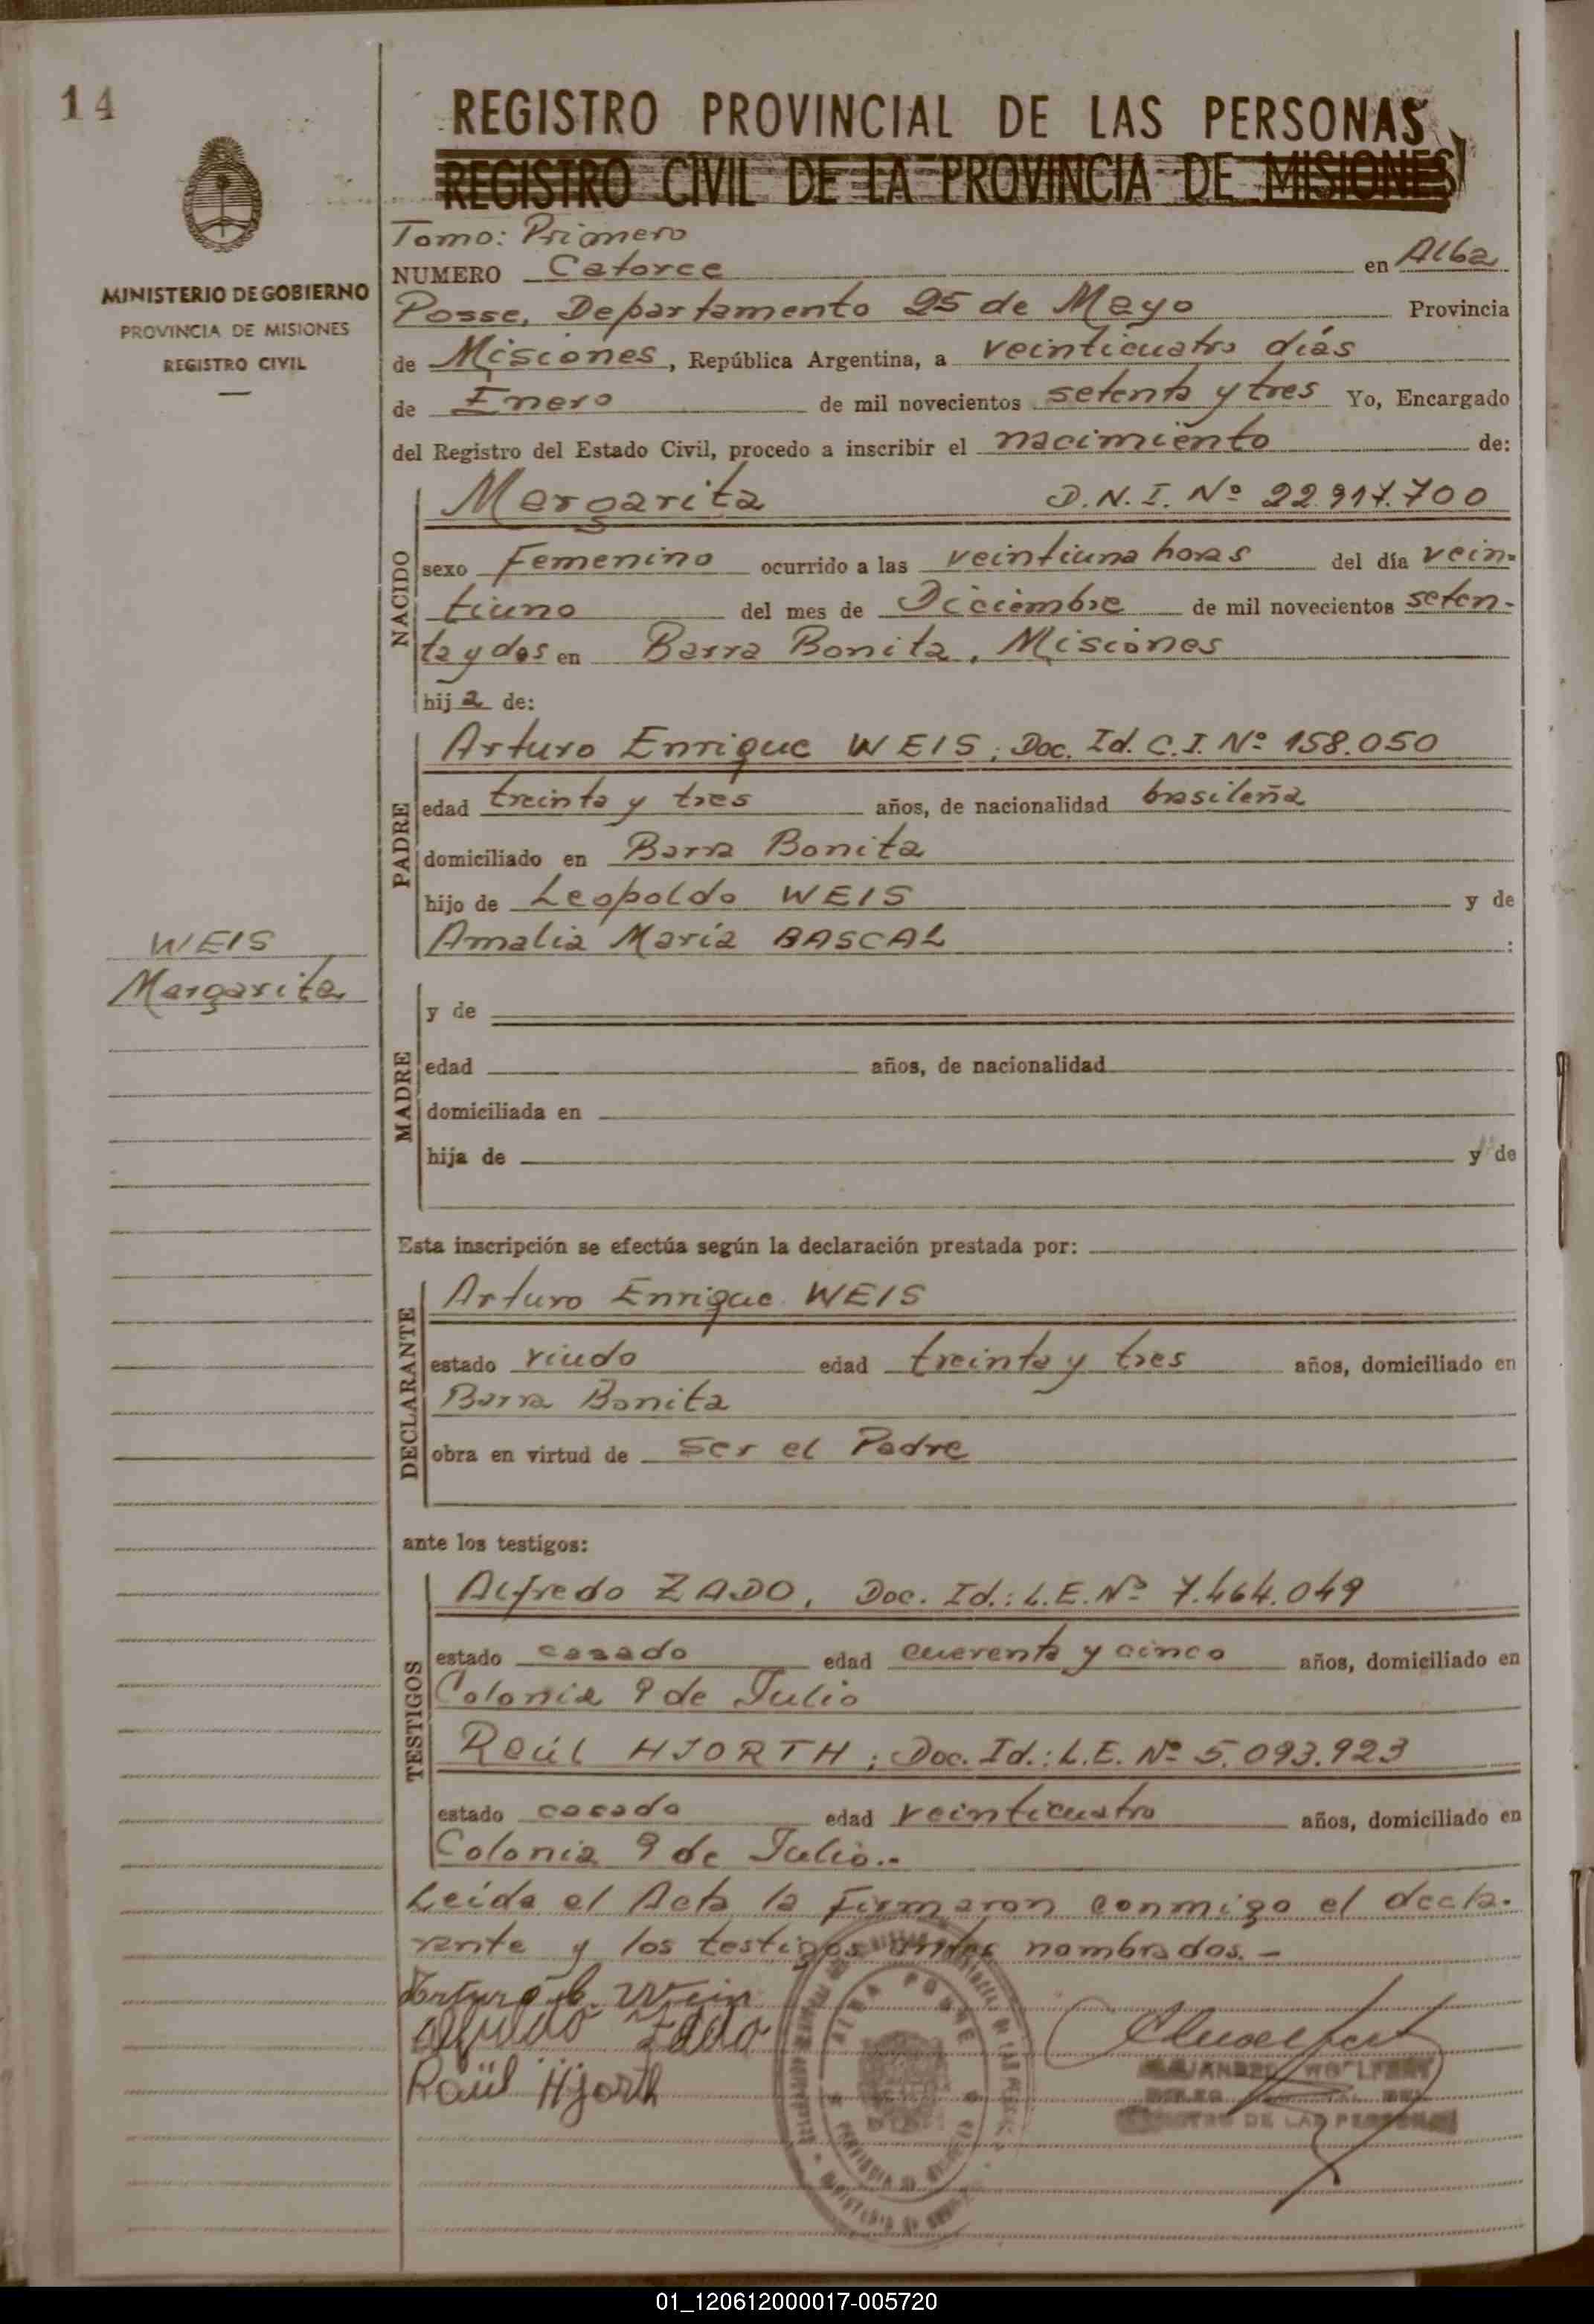 14
MINISTERIO DE GOBIERNO
PROVINCIA DE MISIONES
REGISTRO CIVIL
WEIS
Margarita
REGISTRO PROVINCIAL DE LAS PERSONAS
REGISTRO CIVIL DE LA PROVINCIA DE MISIONES
Tomo: Primero
NUMERO Catorce en Alba
Posse, Departamento 25 de Mayo Provincia
de Misiones, República Argentina, a veinticuatro días
de Enero de mil novecientos setenta y tres Yo, Encargado
del Registro del Estado Civil, procedo a inscribir el nacimiento de:
NACIDO
Margarita D.N.I. Nº 22.917.700
sexo Femenino ocurrido a las veintiuna horas del día vein-
tiuno del mes de Diciembre de mil novecientos seten-
ta y dos en Barra Bonita, Misiones
hija de:
PADRE
Arturo Enrique WEIS; Doc. Id. C.I. Nº 158.050
edad treinta y tres años, de nacionalidad brasileña
domiciliado en Barra Bonita
hijo de Leopoldo WEIS y de
Amalia María BASCAL :
MADRE
y de
edad años, de nacionalidad
domiciliada en
hija de y de
Esta inscripción se efectúa según la declaración prestada por:
DECLARANTE
Arturo Enrique WEIS
estado viudo edad treinta y tres años, domiciliado en
Barra Bonita
obra en virtud de ser el Padre
ante los testigos:
TESTIGOS
Alfredo ZADO, Doc. Id.: L.E. Nº 7.464.049
estado casado edad cuarenta y cinco años, domiciliado en
Colonia 9 de Julio
Raúl HJORTH; Doc. Id.: L.E. Nº 5.093.923
estado casado edad veinticuatro años, domiciliado en
Colonia 9 de Julio.-
Leída el Acta la firmaron conmigo el decla-
rante y los testigos antes nombrados.-
Arturo E. Weis
Alfredo Zado
Raúl Hjorth
ALBA POSSE
DE LAS PERSONAS
01_120612000017-005720